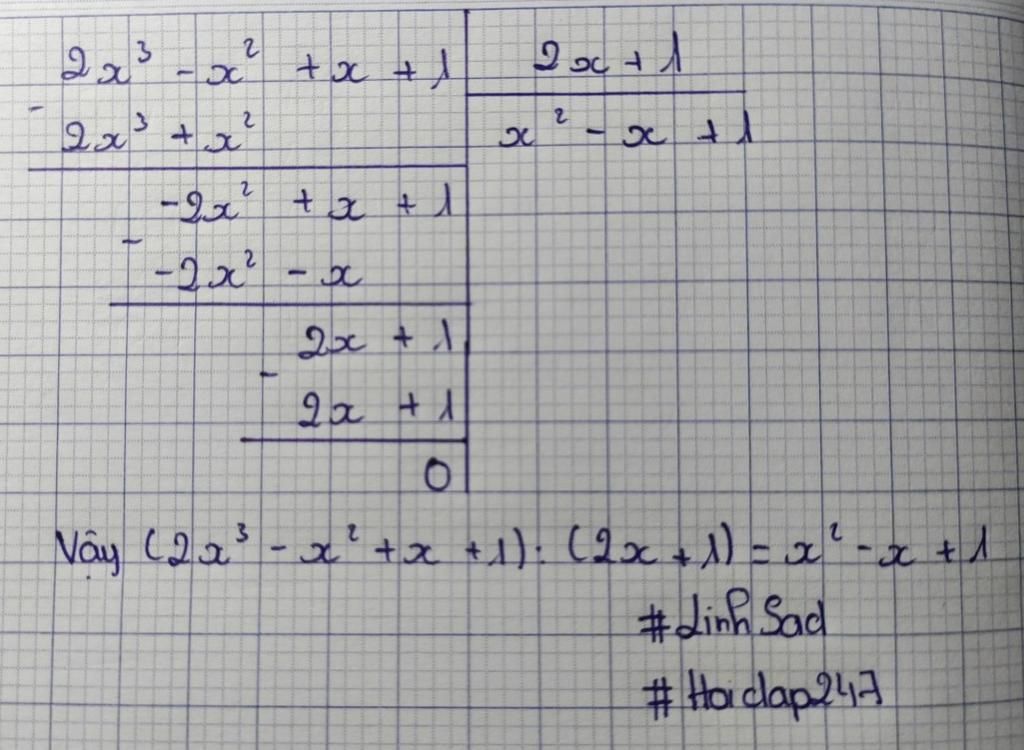 2x³ - x² + x + 1 | 2x + 1
- 2x³ + x² | x² - x + 1
-2x² + x + 1
- -2x² - x
2x + 1
- 2x + 1
0
Vậy (2x³ - x² + x + 1) : (2x + 1) = x² - x + 1
#Linh Sad
#Hoidap247